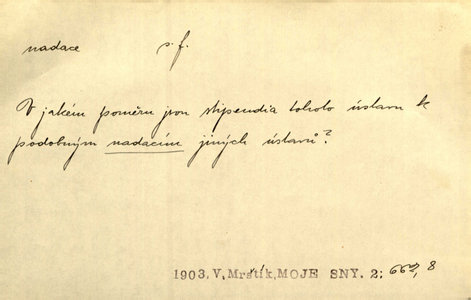 nadace s. f.
V jakém poměru jsou stipendia tohoto ústavu k
podobným nadacím jiných ústavů?
1903, V, Mrštík, MOJE SNY. 2; 8